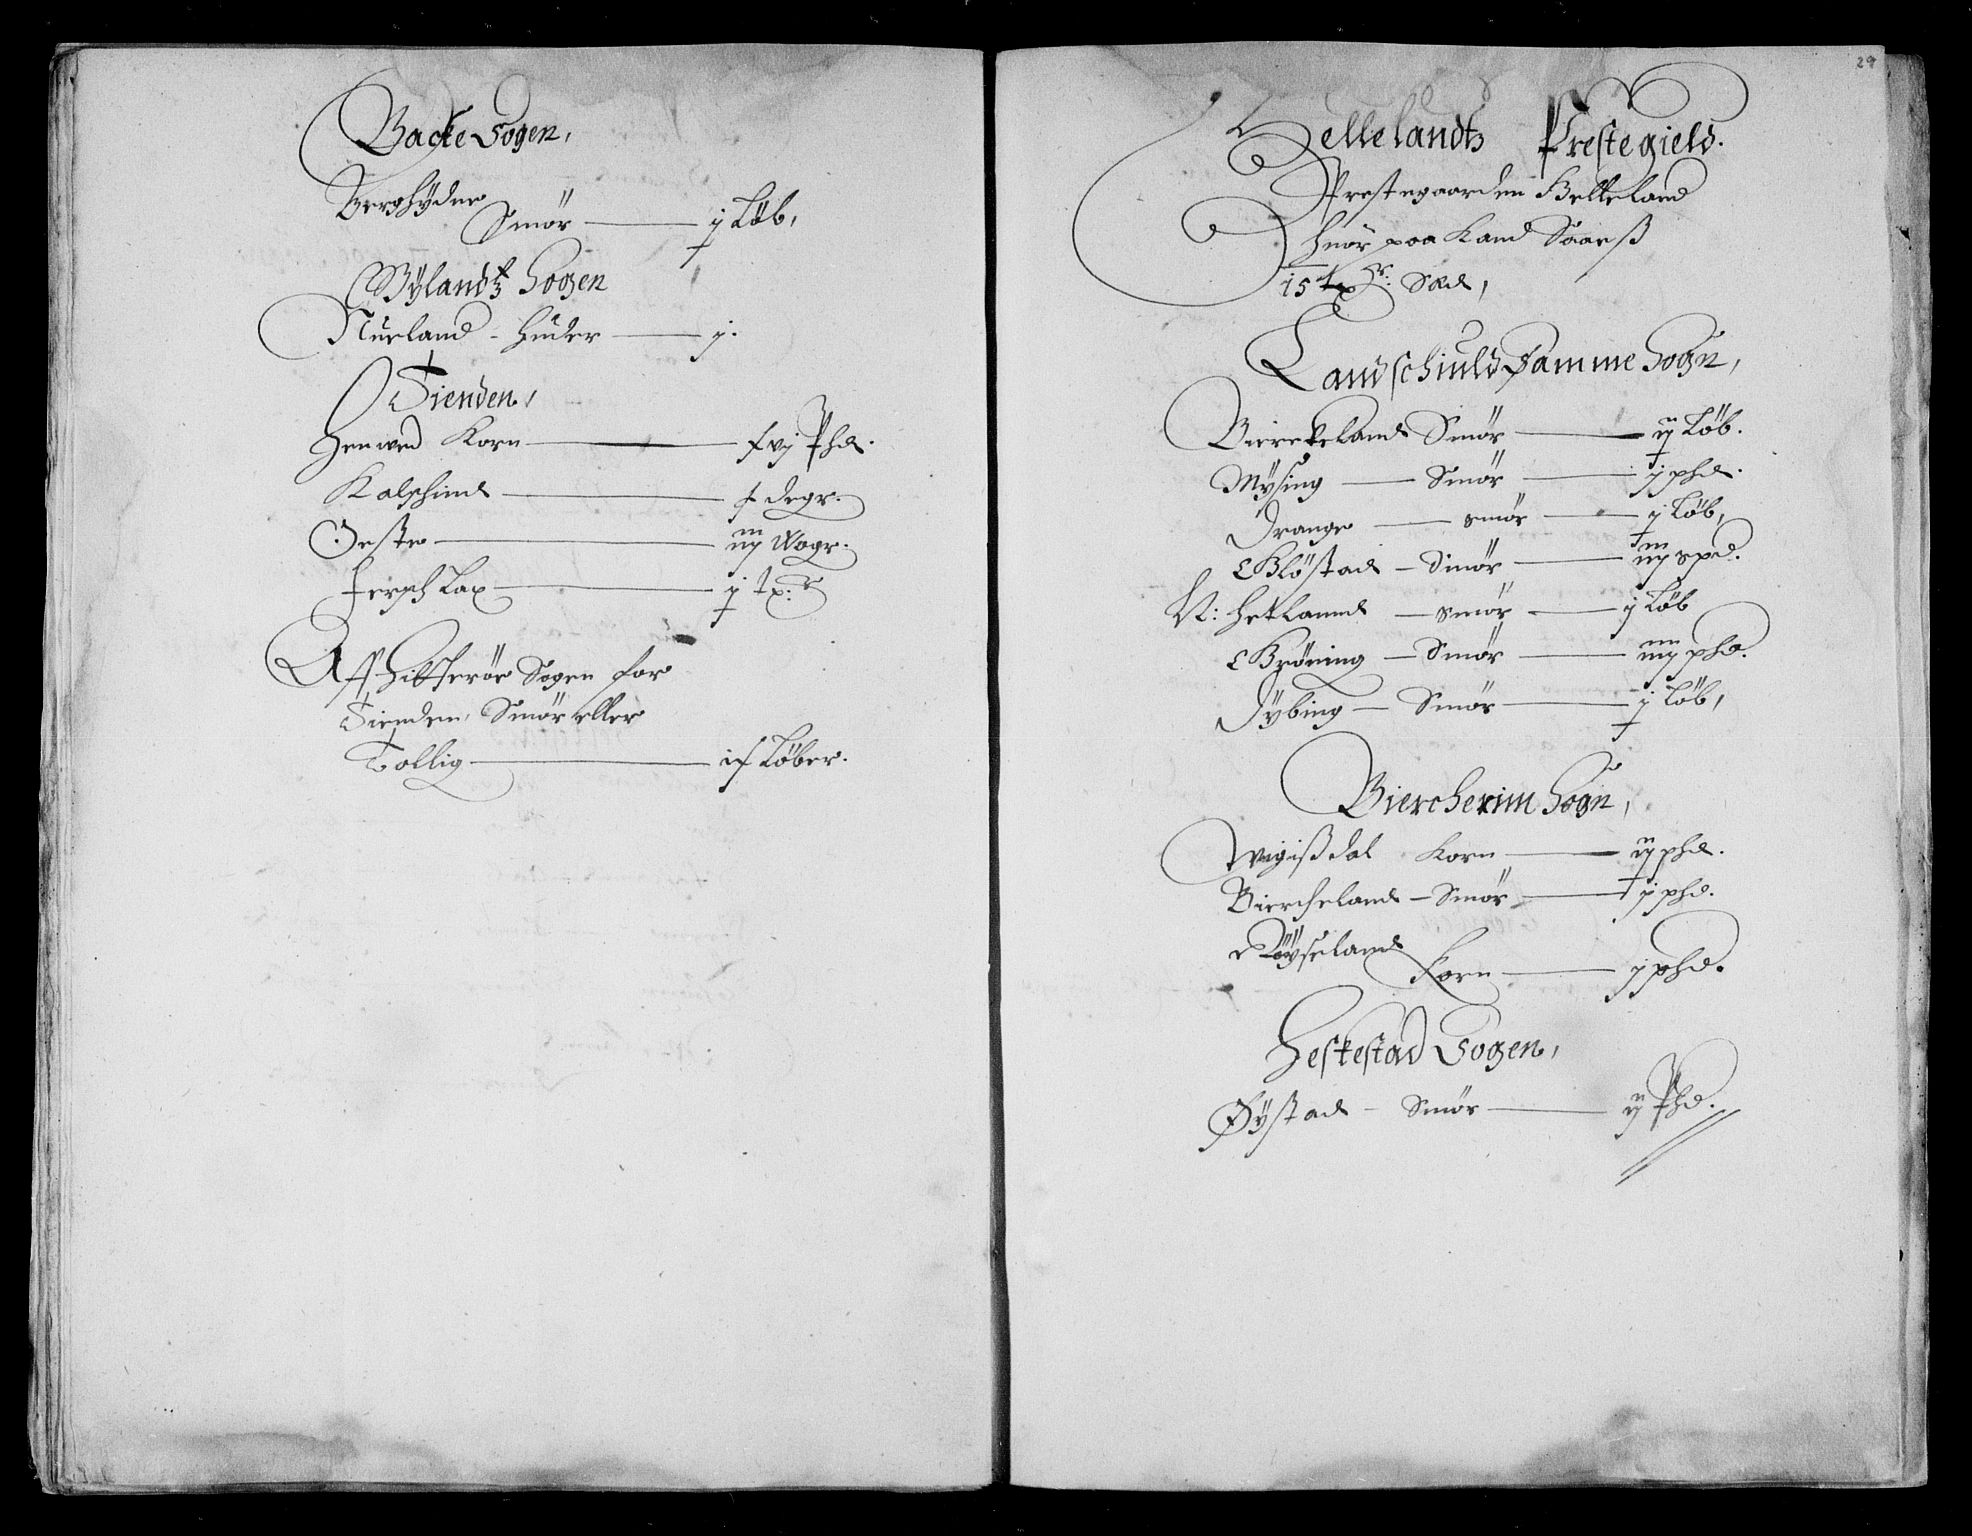 Backe Sogen,
Berghÿdue
Smör — j Løb,
Bÿlandtz Sogen
Nueland - Huder — j.
Tienden,
Henwed Korn — f vj Phd.
Kalfschind — f degr.
Oeste — iij Wogr.
fersch Lax — j tx:r
Aff Hitterøe Sogen for
Tienden, Smör eller
Tallig — if Løber.
29
Hellelandtz Prestegield.
Prestegaarden Helleland
huor paa Kand Saaeß
15 txr: Sæd,
Landschiuld Samme Sogn,
Bierckeland Smör — ij Løb.
Mÿsing — Smör — j phd.
Drange — smör — j Løb,
Bløstad — Smör — iij spd.
N: Hetland — smör — j Løb
Brøning — Smör — iiij phd.
Dÿbing — Smör — j Løb,
Biercherim Sogn,
Wigißdal Korn — ij phd.
Biercheland — Smör — j phd.
Røÿseland
Korn — j phd.
Heskestad Sogen,
Øÿstad - Smör — ij Phd.